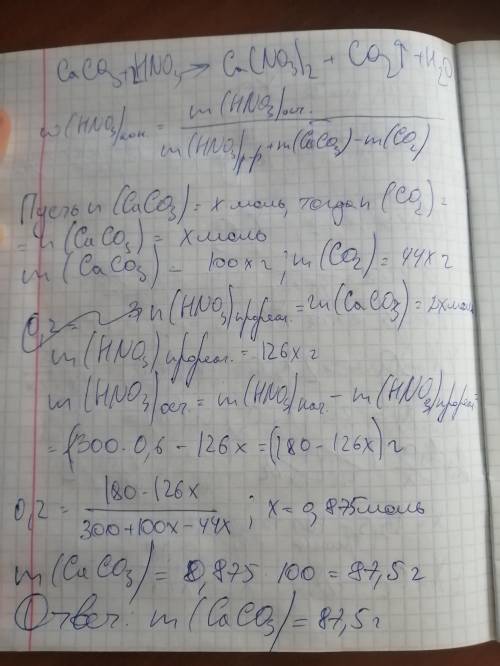 CaCO3+2HNO3→ Ca(NO3)2 + CO2↑ +H2O
w(HNO3)кон. = m(HNO3)ост. / m(HNO3)р-р+m(CaCO3)-m(CO2)
Пусть n(CaCO3)= x моль, тогда n(CO2)=
= n(CaCO3)= x моль
m(CaCO3)= 100x г; m(CO2)= 44x г
0,2= n(HNO3)прореаг.=2n(CaCO3)=2x моль
m(HNO3)прореаг.=126x г
m(HNO3)ост.= m(HNO3)нач.- m(HNO3)прореаг.=
=(300·0,6-126x=(180-126x) г
0,2= 180-126x / 300+100x-44x ; x=0,875моль
m(CaCO3)= 0,875·100=87,5 г
Ответ: m(CaCO3)=87,5 г